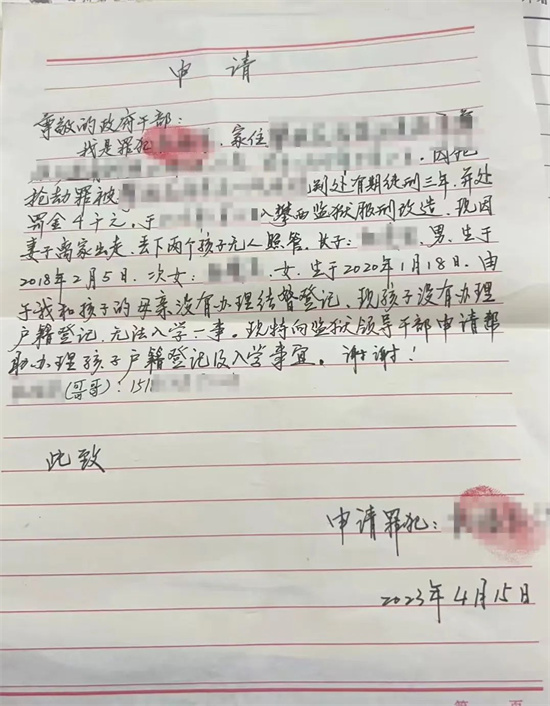 申请
尊敬的政府干部：
我是罪犯，家住
。因犯
抢劫罪被判处有期徒刑三年，并处
罚金4千元，于入攀西监狱服刑改造，现因
妻子离家出走，丢下两个孩子无人照管，长子：，男，生于
2018年2月5日，次女：，女，生于2020年1月18日。由
于我和孩子的母亲没有办理结婚登记，现孩子没有办理
户籍登记，无法入学一事。现特向监狱领导干部申请帮
助办理孩子户籍登记及入学事宜。谢谢！
（哥哥）：151
此致
申请罪犯：
2023年4月15日
第 页